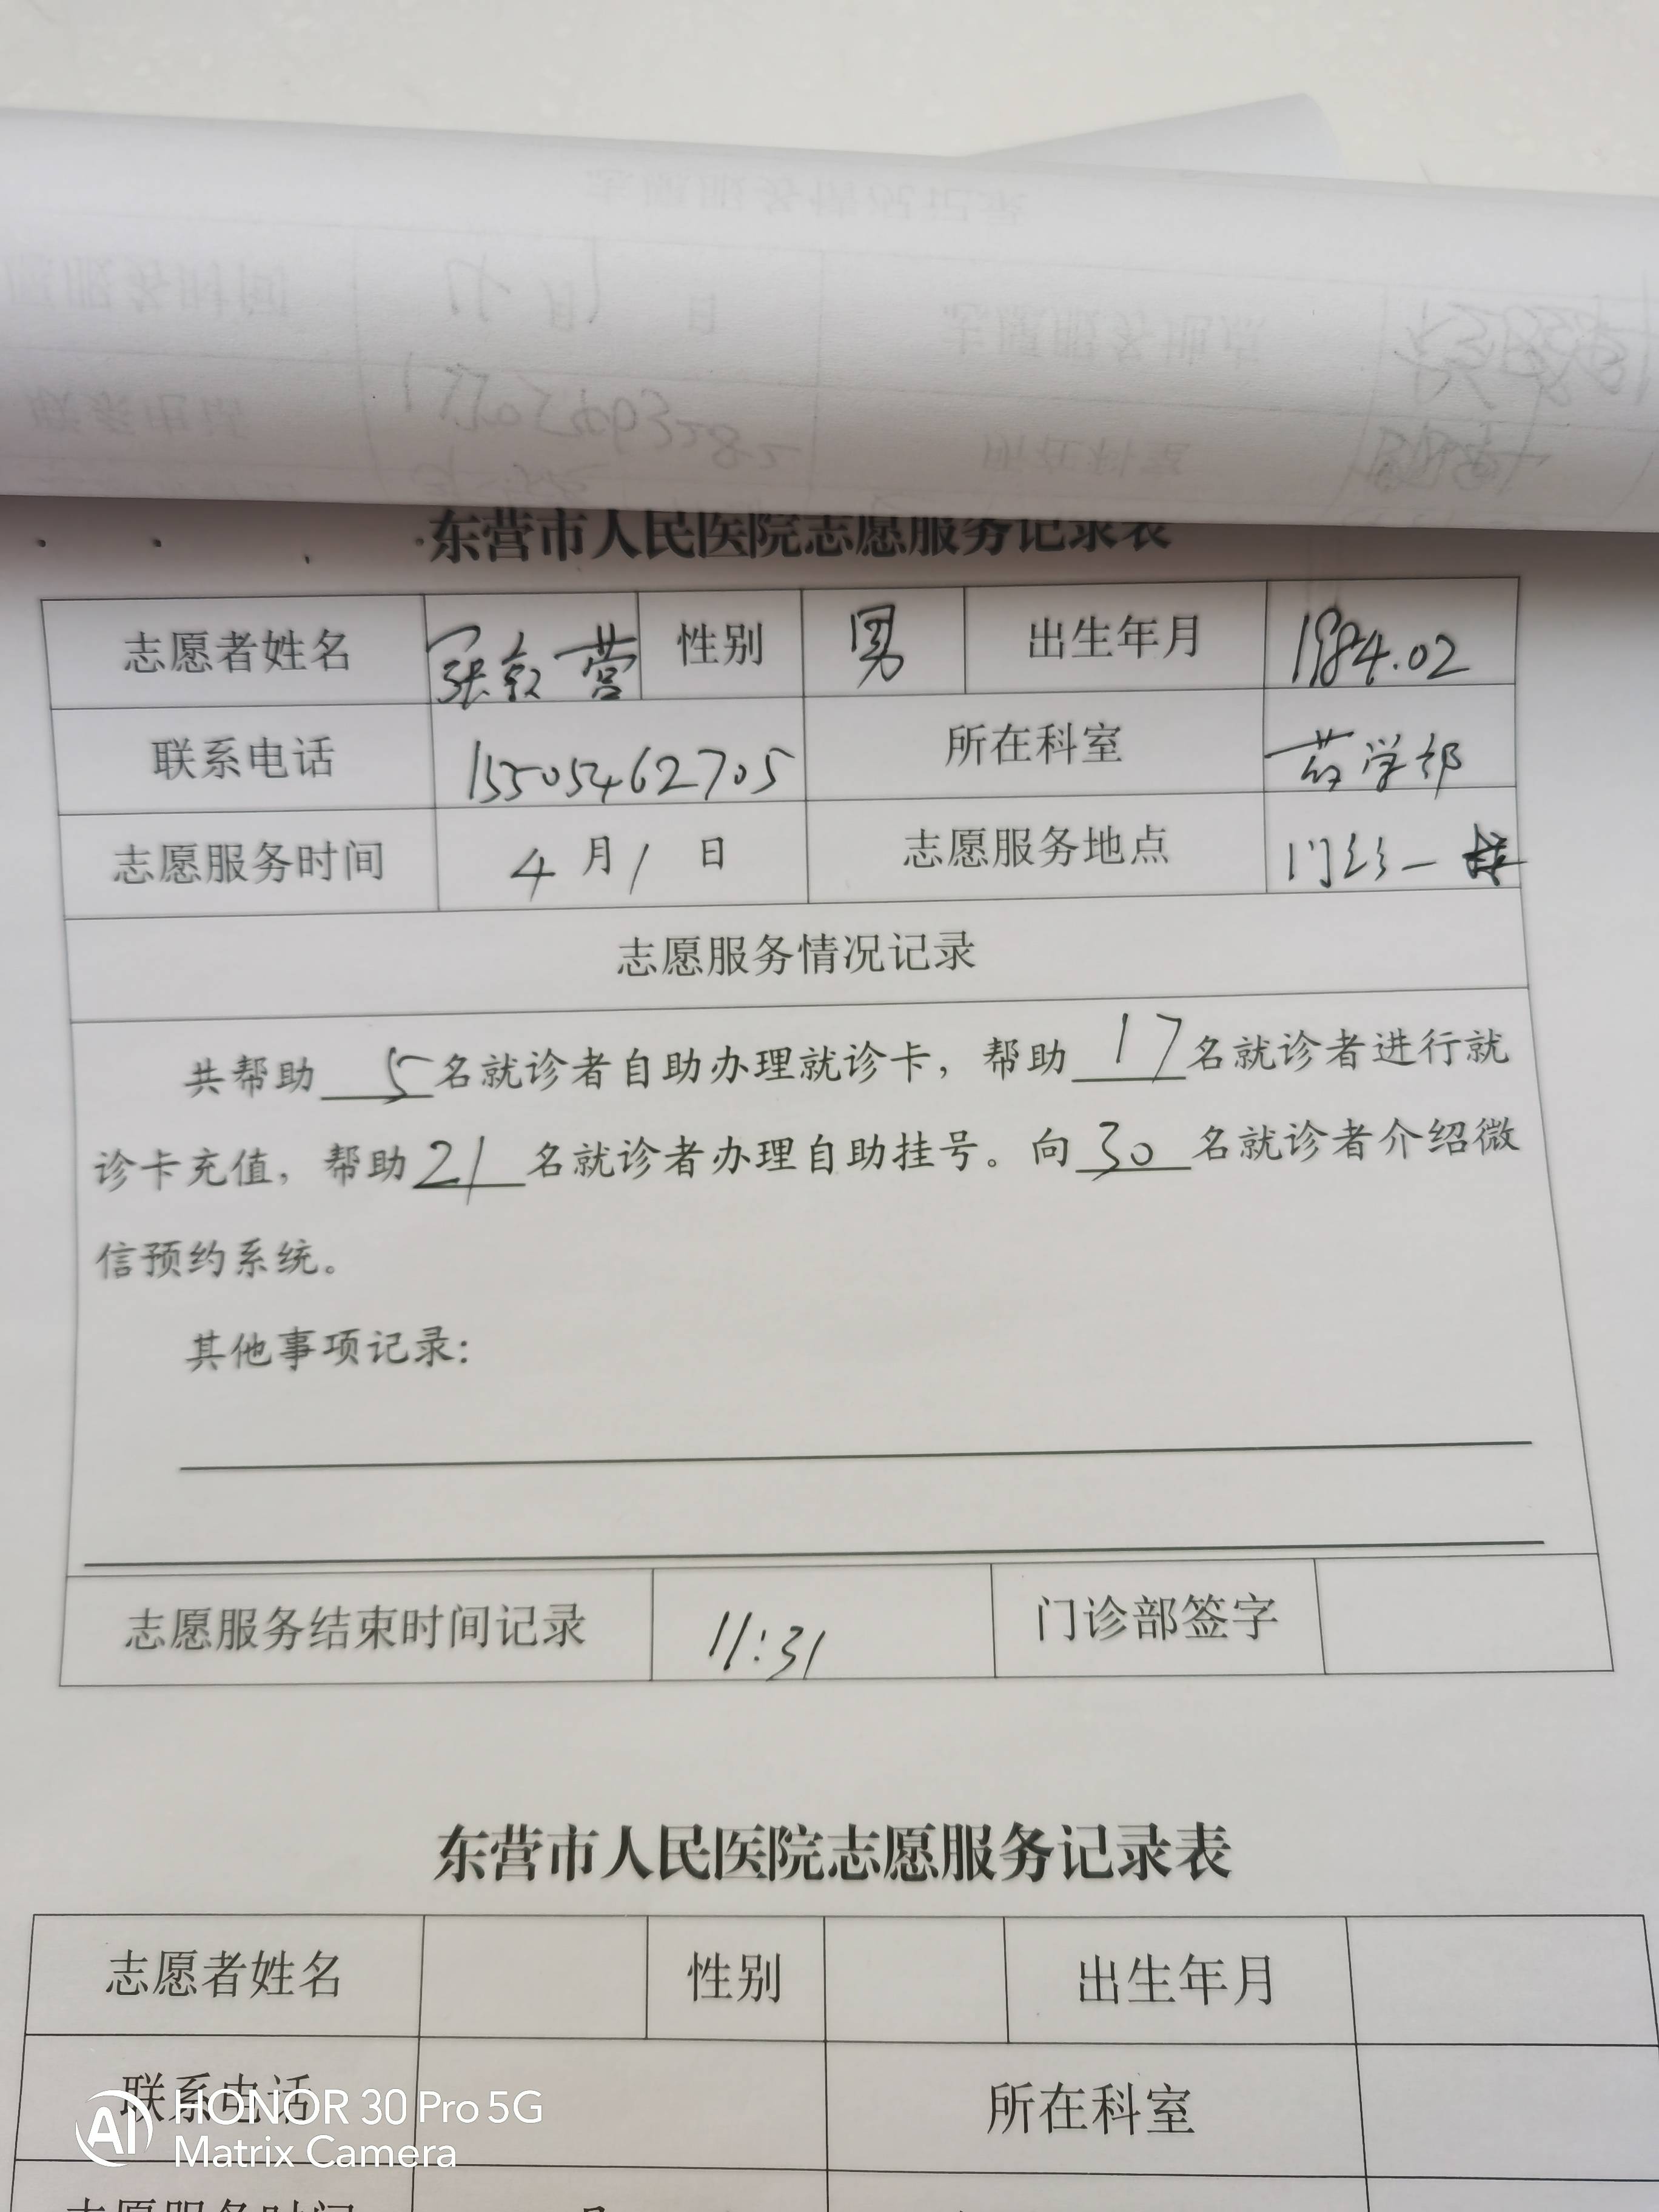 东营市人民医院志愿服务记录表
志愿者姓名 张 营 性别 男 出生年月 1984.02
联系电话 15505462705 所在科室 药学部
志愿服务时间 4月1日 志愿服务地点 门诊一楼
志愿服务情况记录
共帮助 5 名就诊者自助办理就诊卡，帮助 17 名就诊者进行就
诊卡充值，帮助 21 名就诊者办理自助挂号。向 30 名就诊者介绍微
信预约系统。
其他事项记录：
志愿服务结束时间记录 11:31 门诊部签字
东营市人民医院志愿服务记录表
志愿者姓名 性别 出生年月
联系电话 所在科室
志愿服务时间
HONOR 30 Pro 5G
Matrix Camera